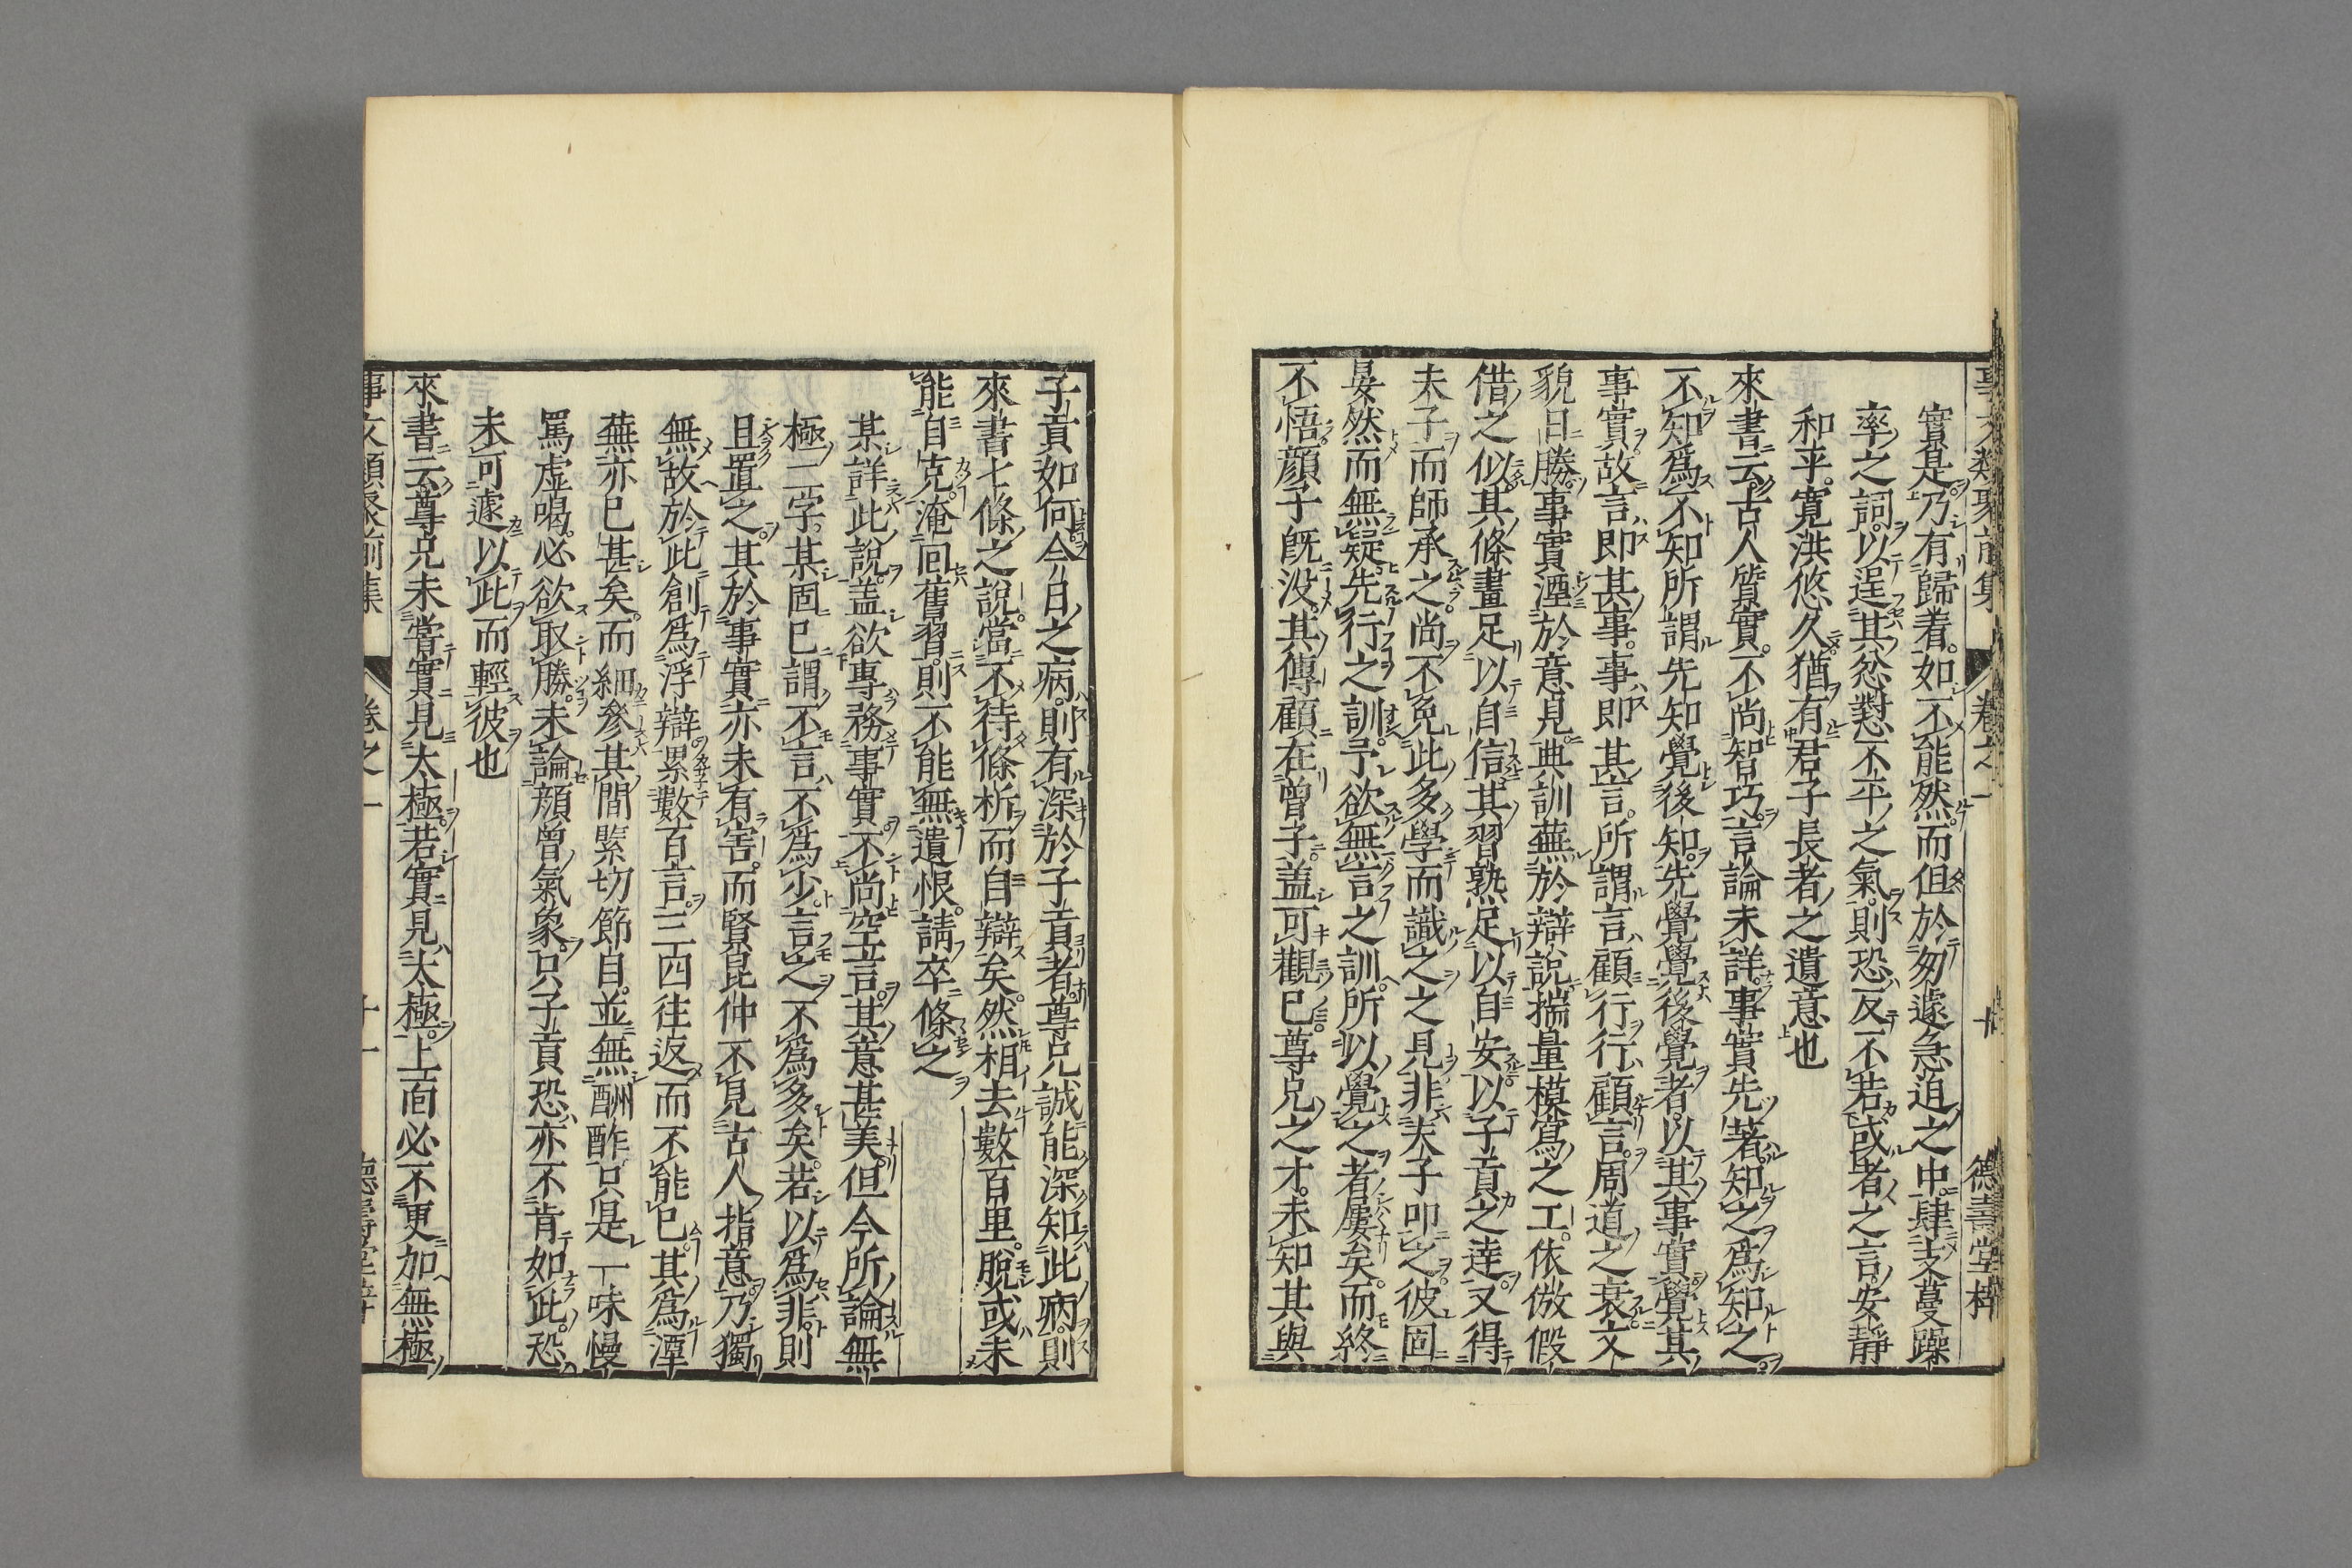 事文類聚前集 卷之一 十 德壽堂梓
實是乃有歸着如不能然而但於匆遽急迫之中肆支蔓躁
率之詞以逞其忿懟不平之氣則恐反不若或者之言安靜
和平寛洪悠久猶有君子長者之遺意也
來書云古人質實不尚智巧言論未詳事實先著知之爲知之
不知爲不知所謂先知覺後知先覺覺後覺者以其事實覺其
事實故言即其事事即其言所謂言顧行行顧言周道之衰文
貌日勝事實湮於意見典訓蕪於辯說揣量模寫之工依倣假
借之似其條畫足以自信其習熟足以自安以子貢之達又得
夫子而師承之尚不免此多學而識之之見非夫子叩之彼固
晏然而無疑先行之訓予欲無言之訓所以覺之者屢矣而終
不悟顔子既没其傳顧在曾子盖可觀已尊兄之才未知其與
子貢如何今日之病則有深於子貢者尊兄誠能深知此病則
來書七條之說當不待條析而自辯矣然相去數百里脫或未
能自克淹回舊習則不能無遺恨請卒條之
某詳此說盖欲專務事實不尚空言其意甚美但今所論無
極二字某固已謂不言不爲少言之不爲多矣若以爲非則
且置之其於事實亦未有害而賢昆仲不見古人指意乃獨
無故於此創爲浮辯累數百言三四往返而不能已其爲湮
蕪亦已甚矣而細參其間緊切節目並無酬酢只是一味慢
罵虚喝必欲取勝未論顔曾氣象只子貢恐亦不肯如此恐
未可遽以此而輕彼也
來書云尊兄未嘗實見太極若實見太極上面必不更加無極
事文類聚前集 卷之一 十一 德壽堂梓